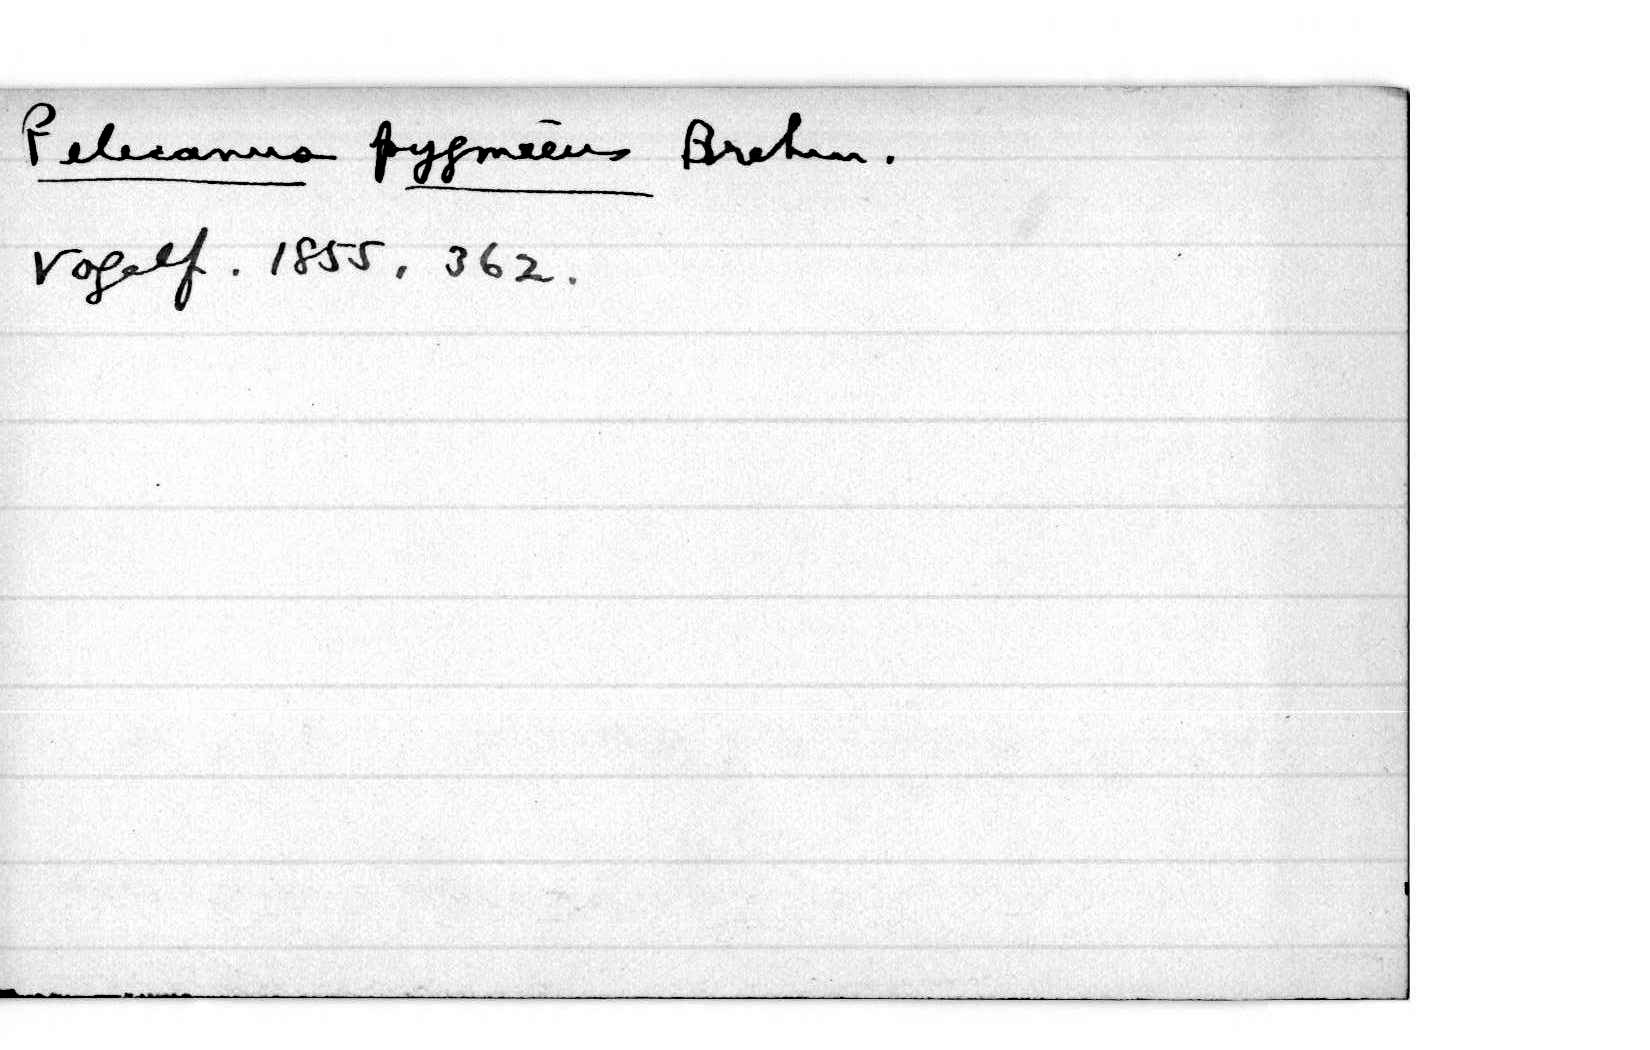 Pelecanus pygmaeus Brehm.
Vogelf. 1855, 362.